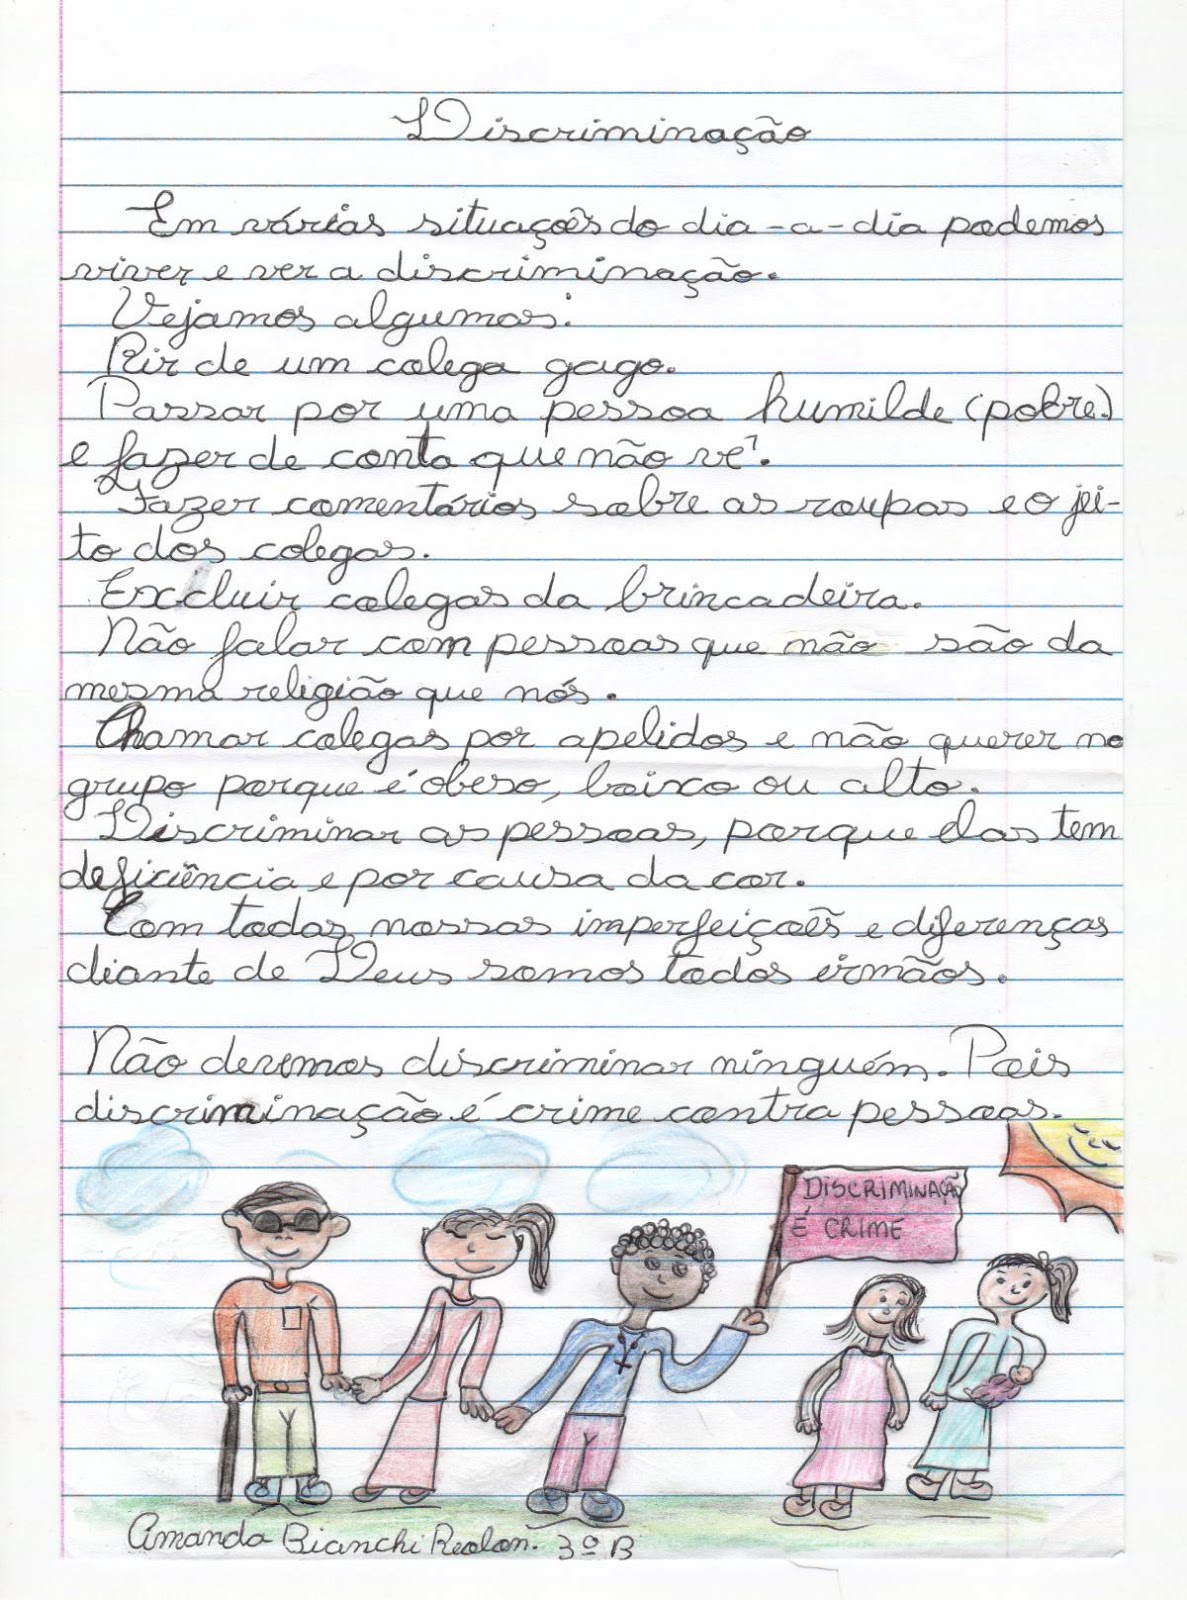 Discriminação
Em várias situações do dia-a-dia podemos
viver e ver a discriminação.
Vejamos algumas:
Rir de um colega gago.
Passar por uma pessoa humilde (pobre)
e fazer de conta que não vê.
Fazer comentários sobre as roupas e o jei-
to dos colegas.
Excluir colegas da brincadeira.
Não falar com pessoas que não são da
mesma religião que nós.
Chamar colegas por apelidos e não querer no
grupo porque é obeso, baixo ou alto.
Discriminar as pessoas, porque elas tem
deficiência e por causa da cor.
Com todas nossas imperfeições e diferenças
diante de Deus somos todos irmãos.
Não devemos discriminar ninguém. Pois
discriminação é crime contra pessoas.
DISCRIMINAÇÃO
É CRIME
Amanda Bianchi Reolon. 3º B